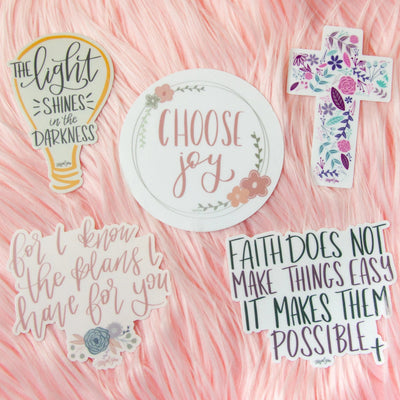 THE
light
SHINES
in the
DARKNESS
CHOOSE
joy
for I know
the plans I
have for you
FAITH DOES NOT
MAKE THINGS EASY
IT MAKES THEM
POSSIBLE